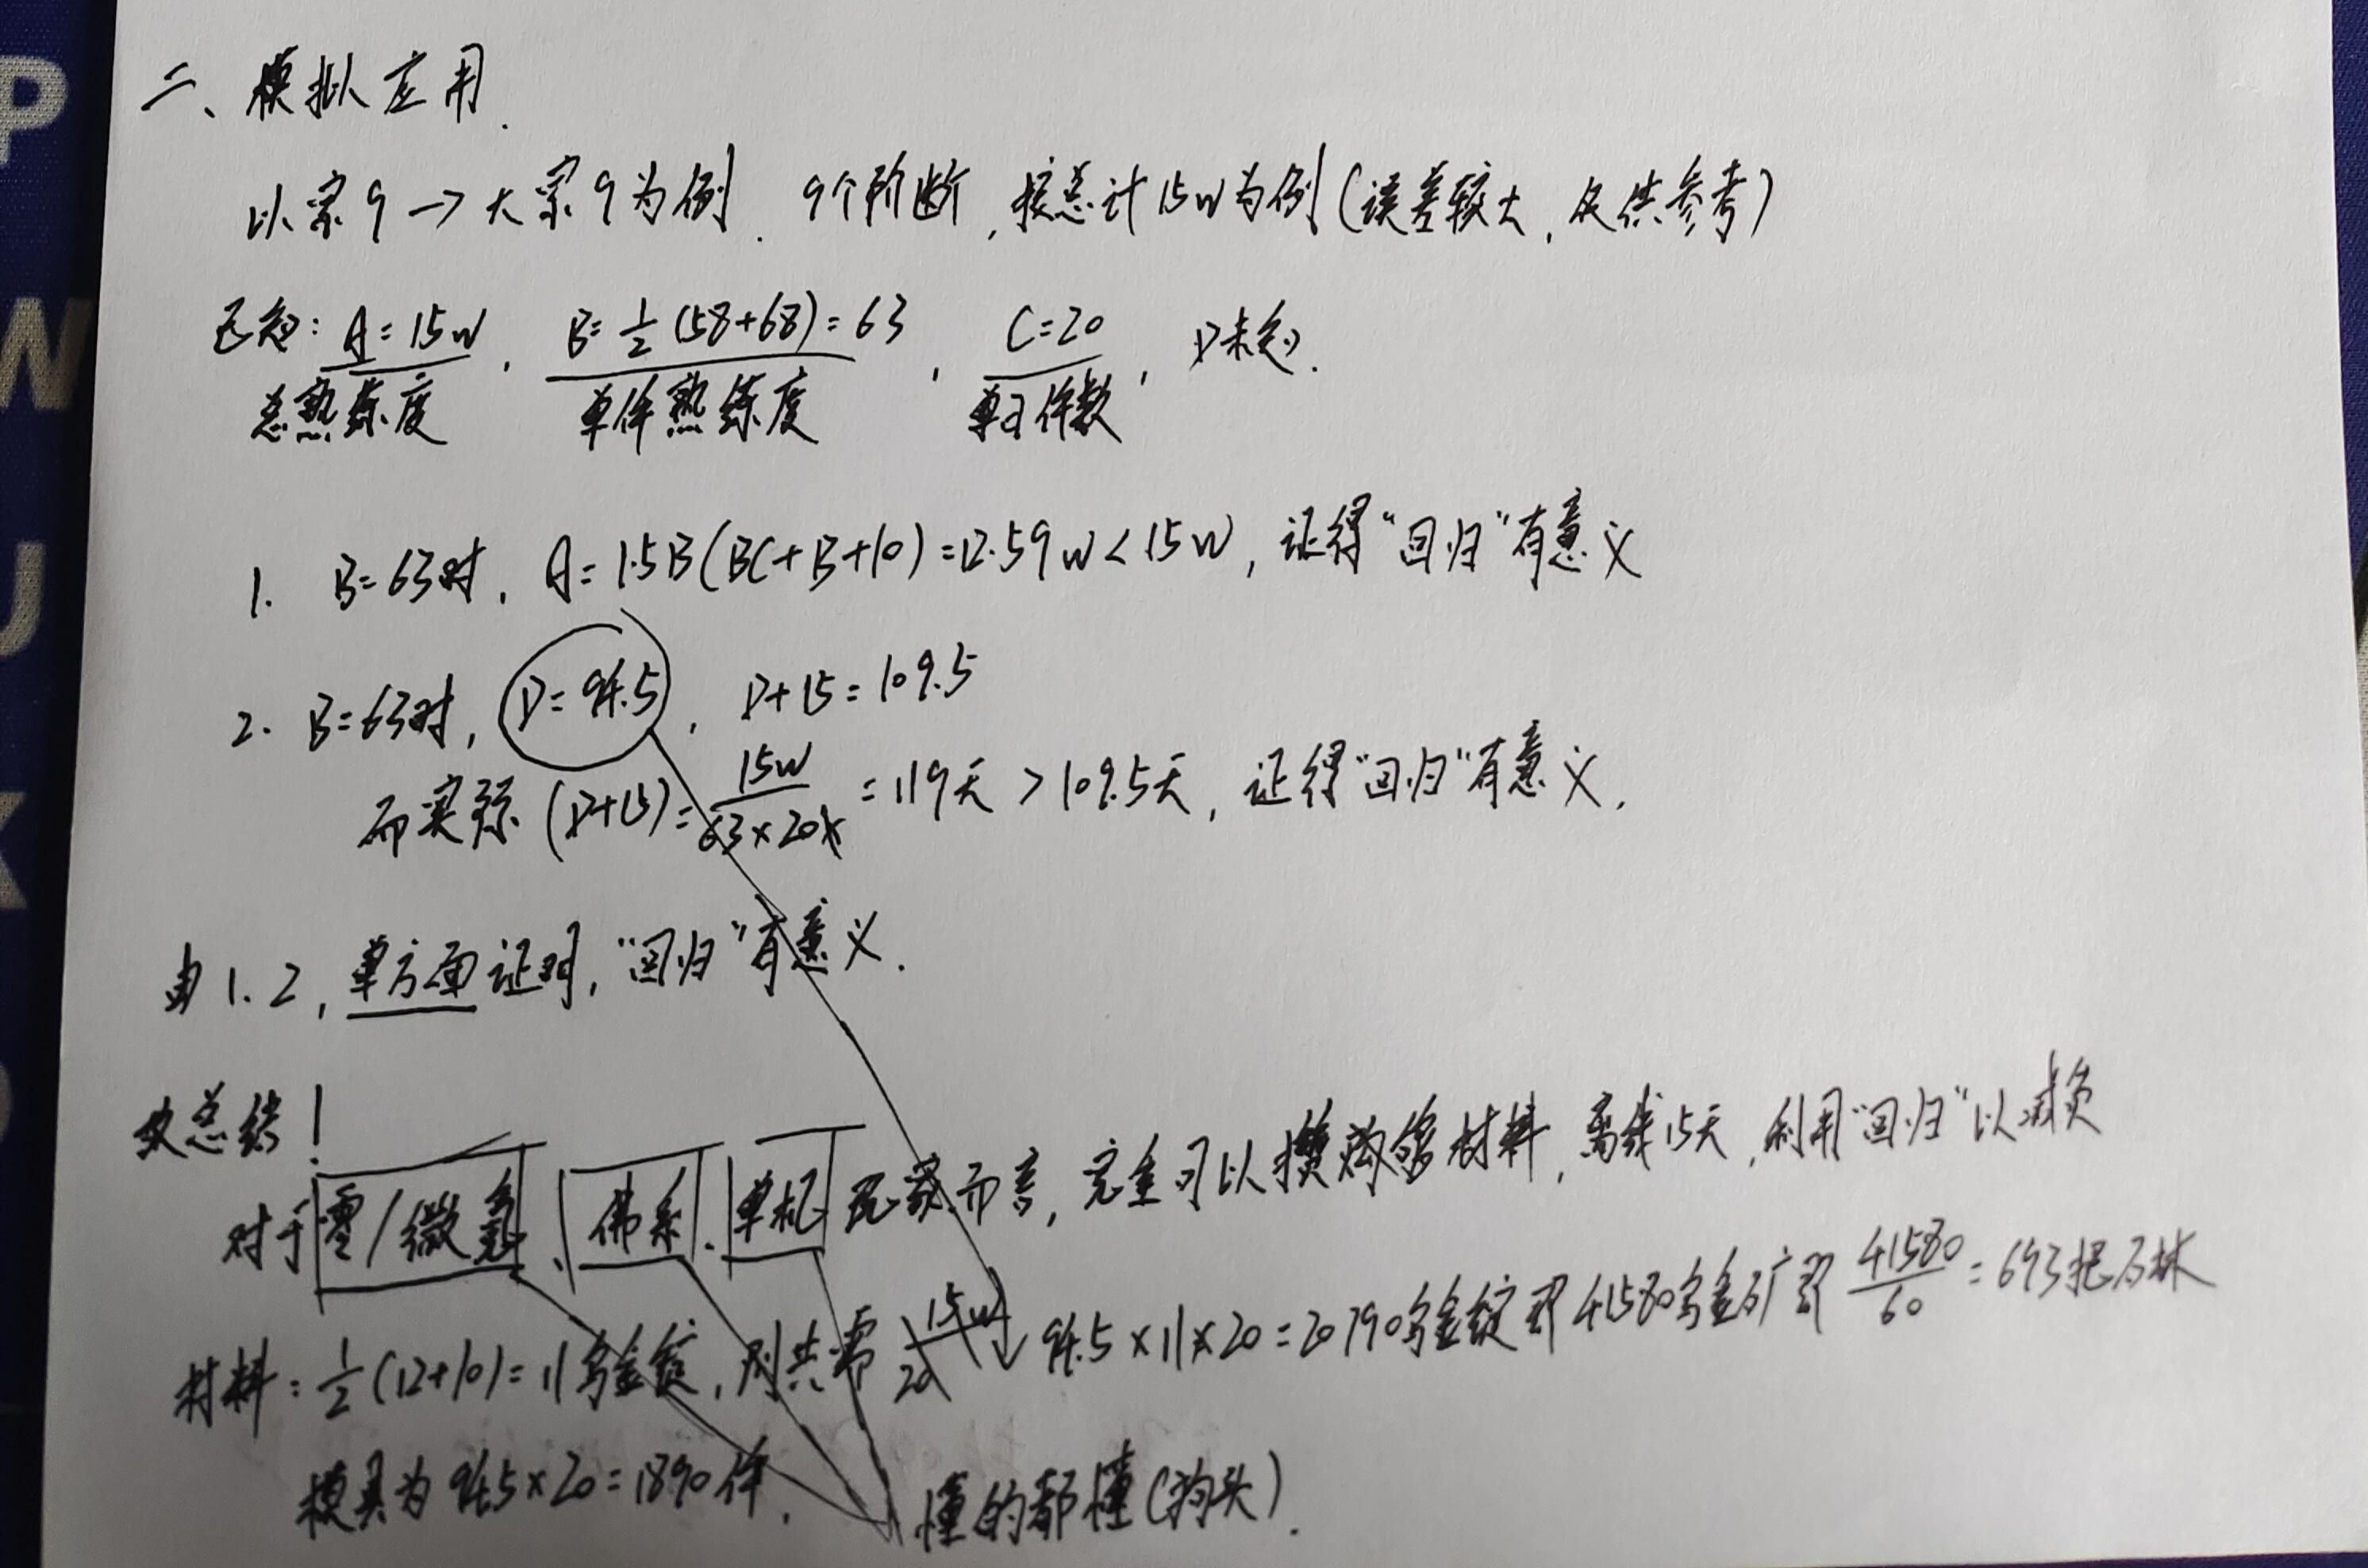 二、模拟应用.
以宗9→大宗9为例. 9个阶断, 按总计15w为例(误差较大, 仅供参考)
已知: A=15w, B=1/2(58+68)=63, C=20, D未知.
总熟练度 单件熟练度 单日件数
1. B=63时, A=1.5B(BC+B+10)=12.59w<15w, 证得"回归"有意义
2. B=63时, D=94.5, D+15=109.5
而实际(D+15)=15w/63×20=119天>109.5天, 证得"回归"有意义.
由1.2, 单方面证明, "回归"有意义.
故总结!
对于零/微氪、佛系、单机玩家而言, 完全可以攒够材料, 离线15天, 利用"回归"以减负
材料: 1/2(12+10)=11乌金锭, 则共需 94.5×11×20=20790乌金锭即41580乌金矿即41580/60=693把石林
模具为94.5×20=1890件. 懂的都懂(狗头).
P
W
U